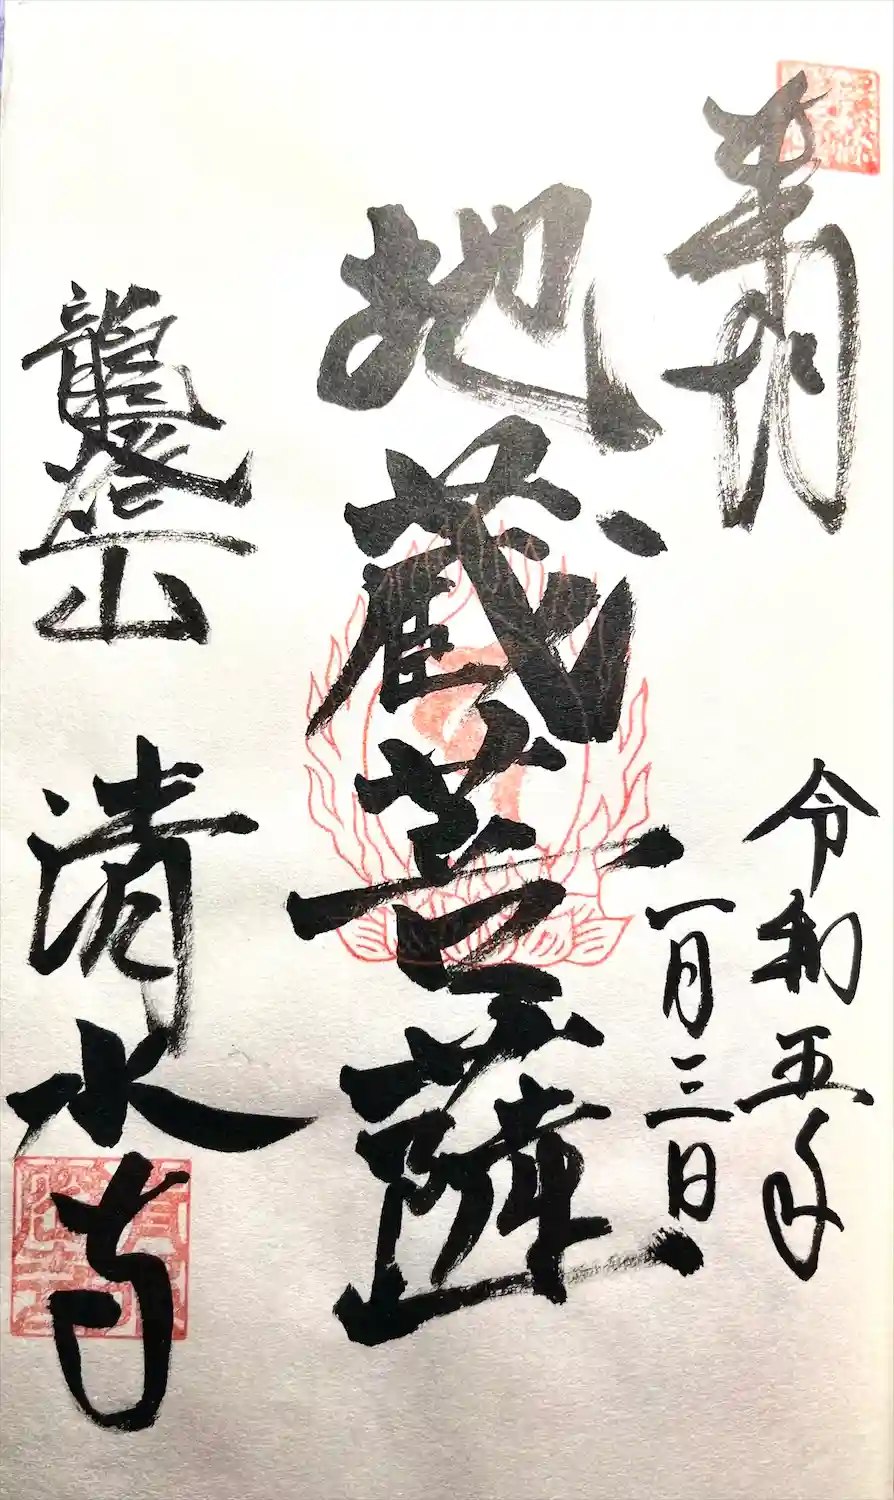 奉拝
令和五年
一月三日
地蔵菩薩
山 清水寺